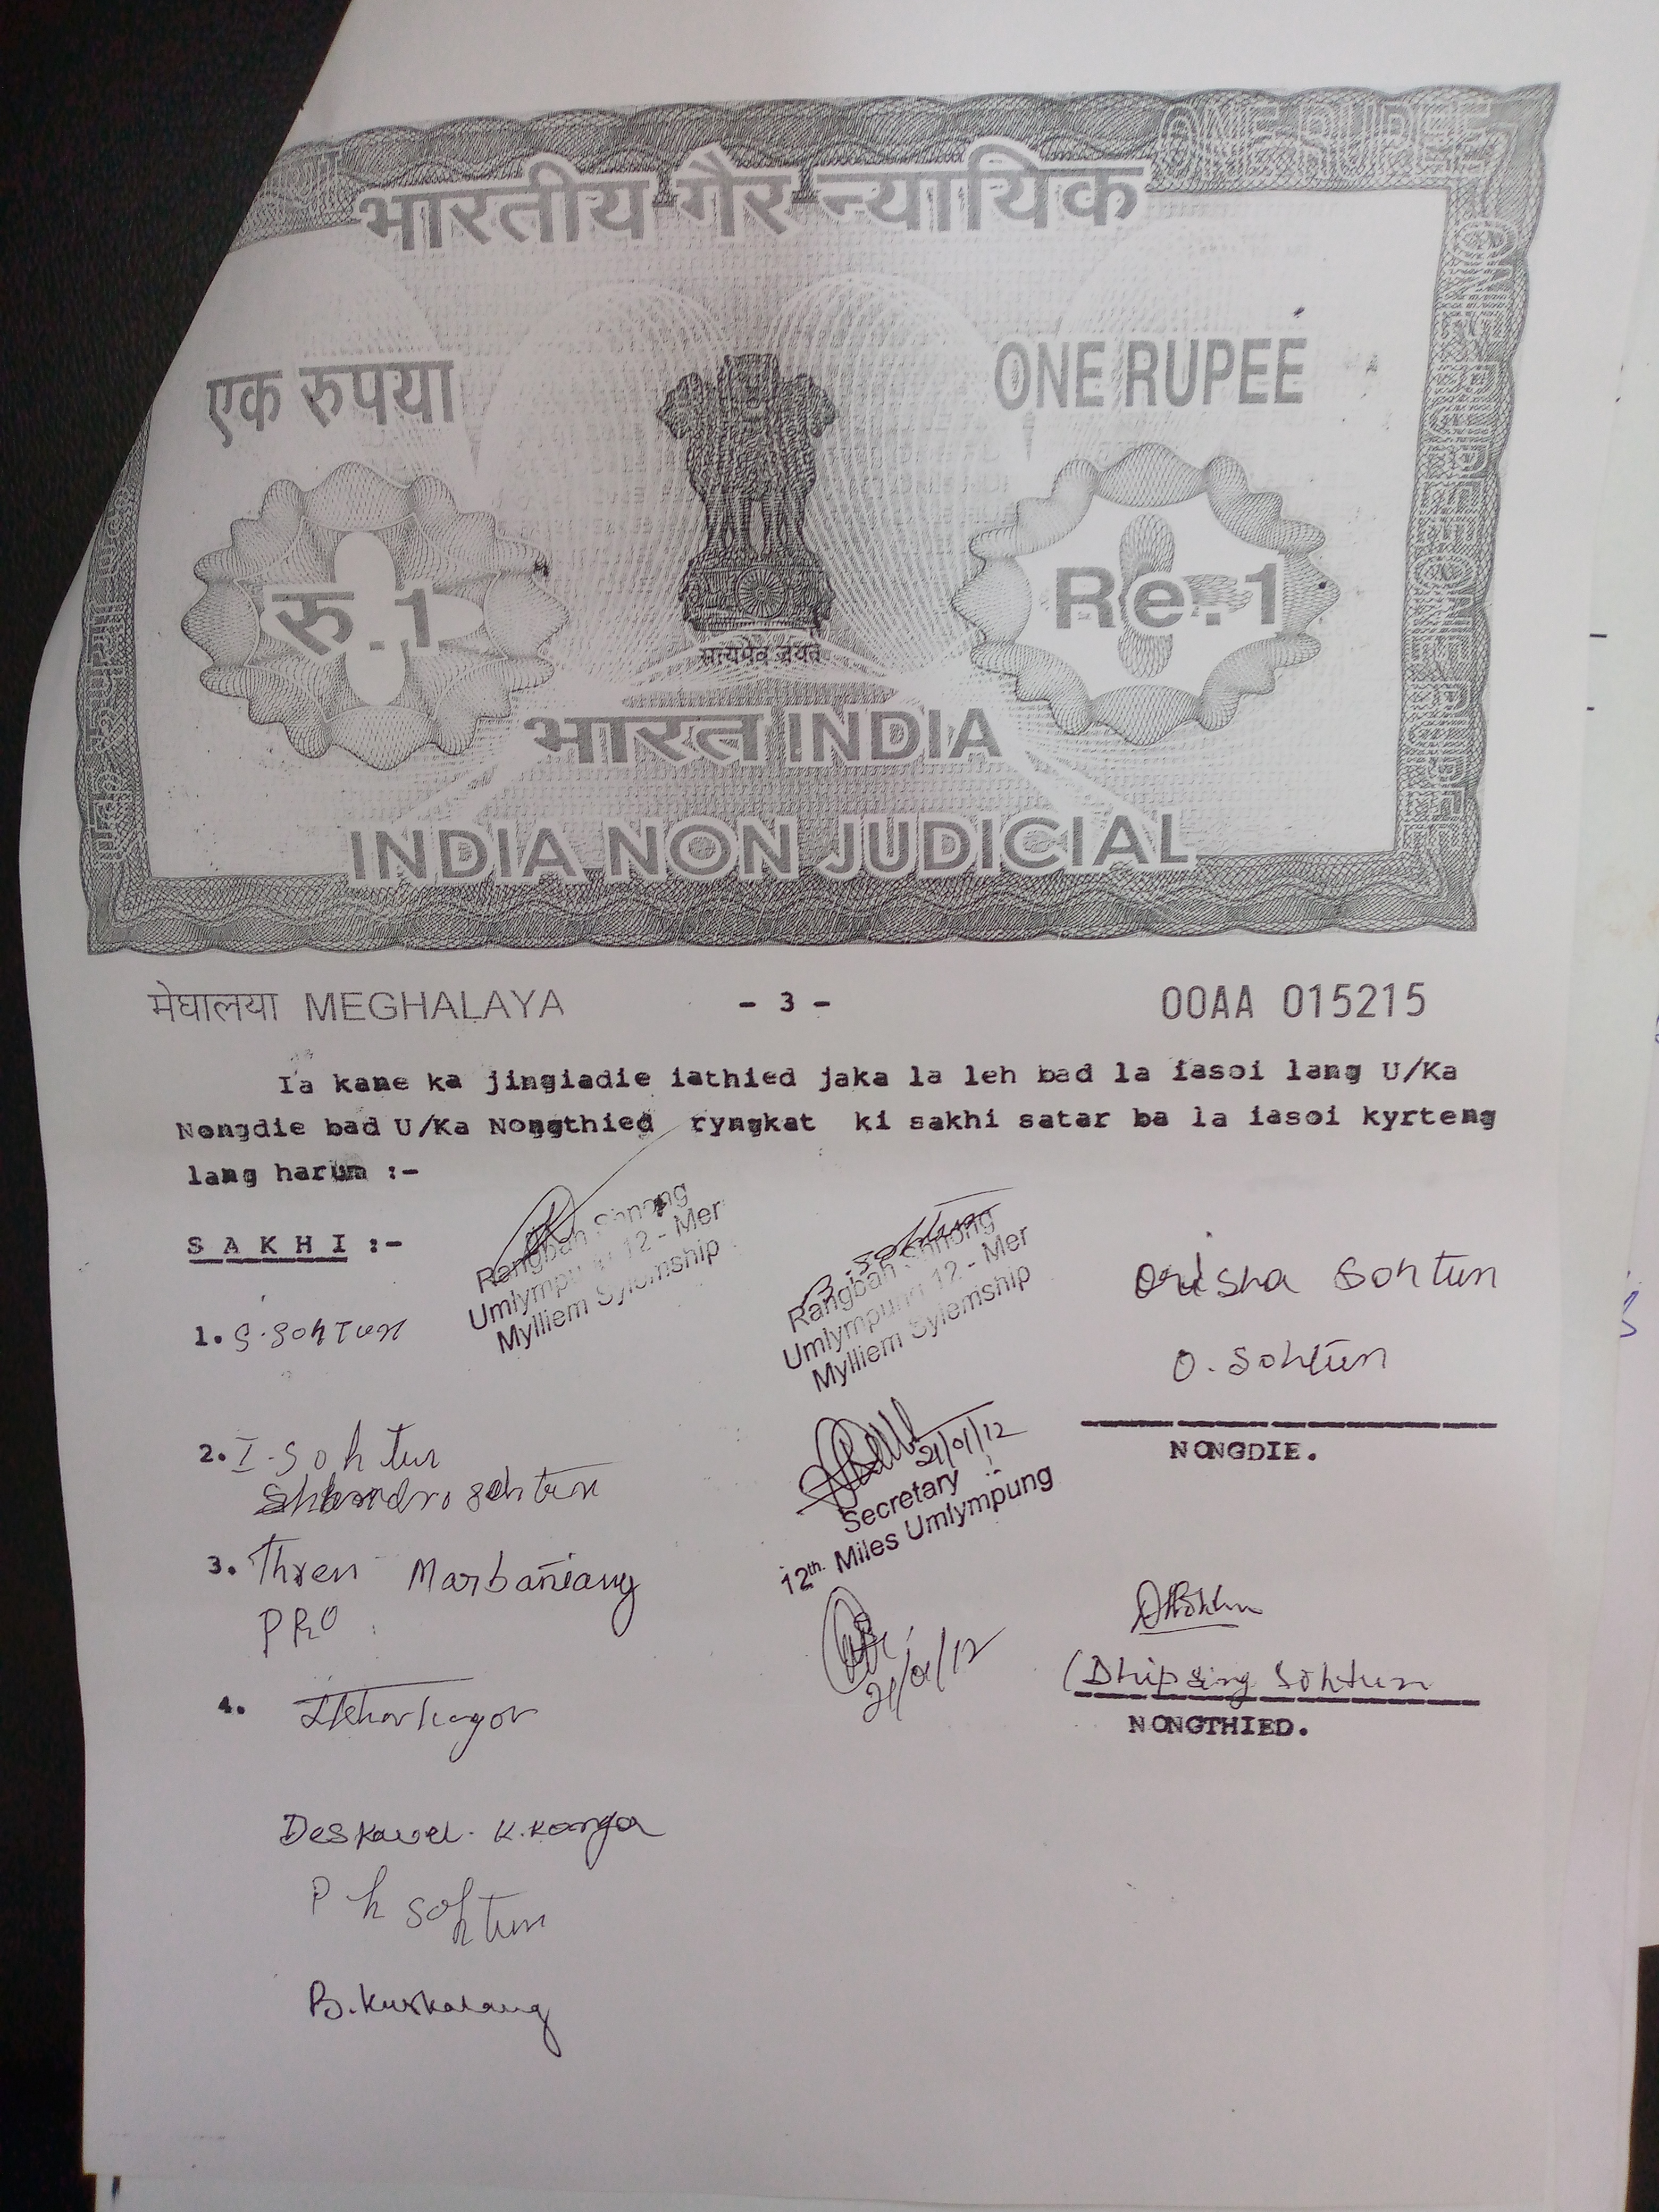 भारतीय गैर न्यायिक
ONE RUPEE
एक रुपया
ONE RUPEE
रु.1
Re.1
सत्यमेव जयते
भारत INDIA
INDIA NON JUDICIAL
मेघालया MEGHALAYA
- 3 -
00AA 015215
Ia kane ka jingiadie iathied jaka la leh bad la iasoi lang U/Ka
Nongdie bad U/Ka Nongthied ryngkat ki sakhi satar ba la iasoi kyrteng
lang harum :-
S A K H I :-
Rangbah Shnong
Umlympung 12 - Mer
Mylliem Syiemship
B. Sohtun
Rangbah Shnong
Umlympung 12 - Mer
Mylliem Syiemship
Orisha Sohtun
O. Sohtun
NONGDIE.
1. S. Sohtun
2. I. Sohtun
Sohtun
21/01/12
Secretary
12th Miles Umlympung
3. Thren Marbaniang
PRO
21/01/12
(Dhipsing Sohtun
NONGTHIED.
4.
K.
P h Sohtun
B.